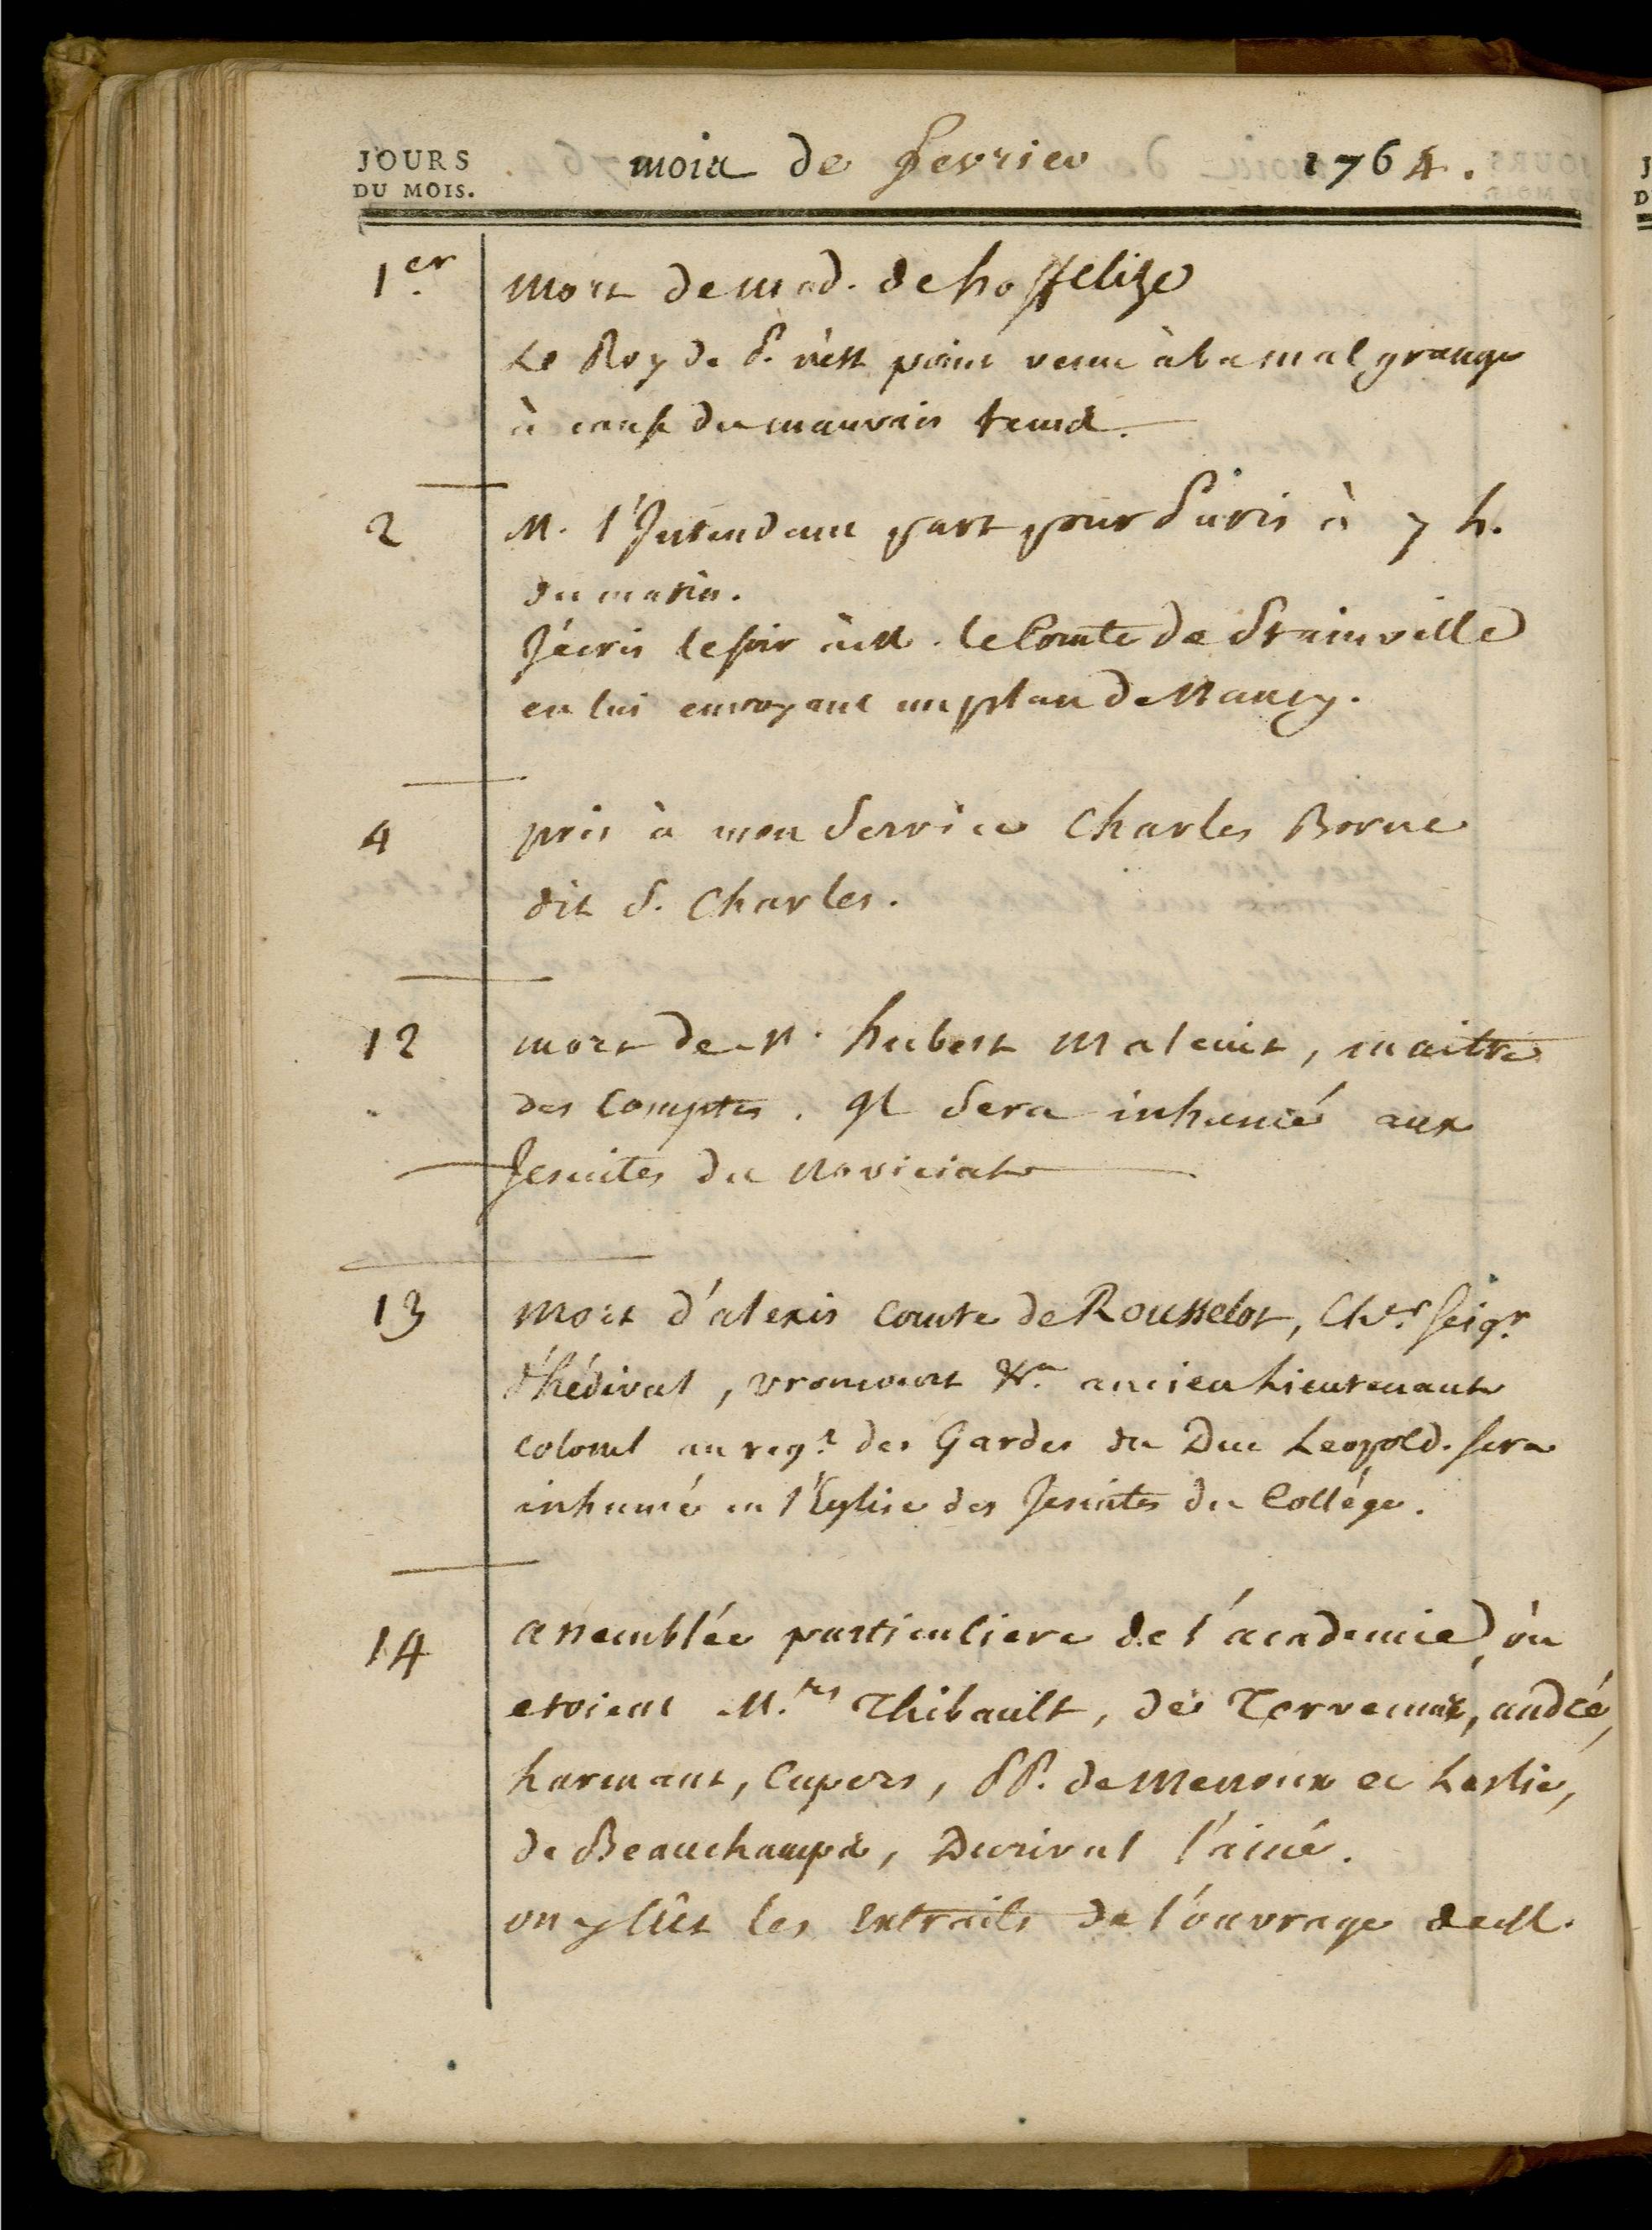 JOURS
DU MOIS.
mois de fevrier 1764.
1er. mort de Mad. de hoffelize
Le Roy de P. n'est point venu à la malgrange
à cause du mauvais temds.
2 M. l'Intendant part pour Paris à 7 h.
du matin.
J'écris le soir à M. le Comte de Stainville
en lui envoyant un plan de Nancy.
4 pris à mon Service Charles Borne
dit S. Charles.
12 mort de M. hubert Malcuit, maitre
des Comptes. Il Sera inhumé aux
Jesuites du Noviciat
13 Mort d'alexis Comte de Rousselot, Chr. seigr.
d'hédival, vroncourt &a. ancien Lieutenant
colonel au regt. des Gardes du Duc Leopold. sera
inhumé en l'Eglise des Jesuites du Collége.
14 assemblée particuliere de l'académie, où
etoient M.rs Thibault, de Tervenus, andré,
harmant, Cupers, PP. de Menoux et Leslie,
de Beauchamps, Durival l'ainé.
on y lût les Extraits de l'ouvrage de M.